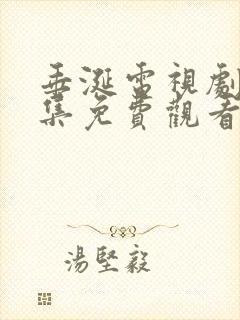 垂涎電視劇
集免費觀看
湯堅毅